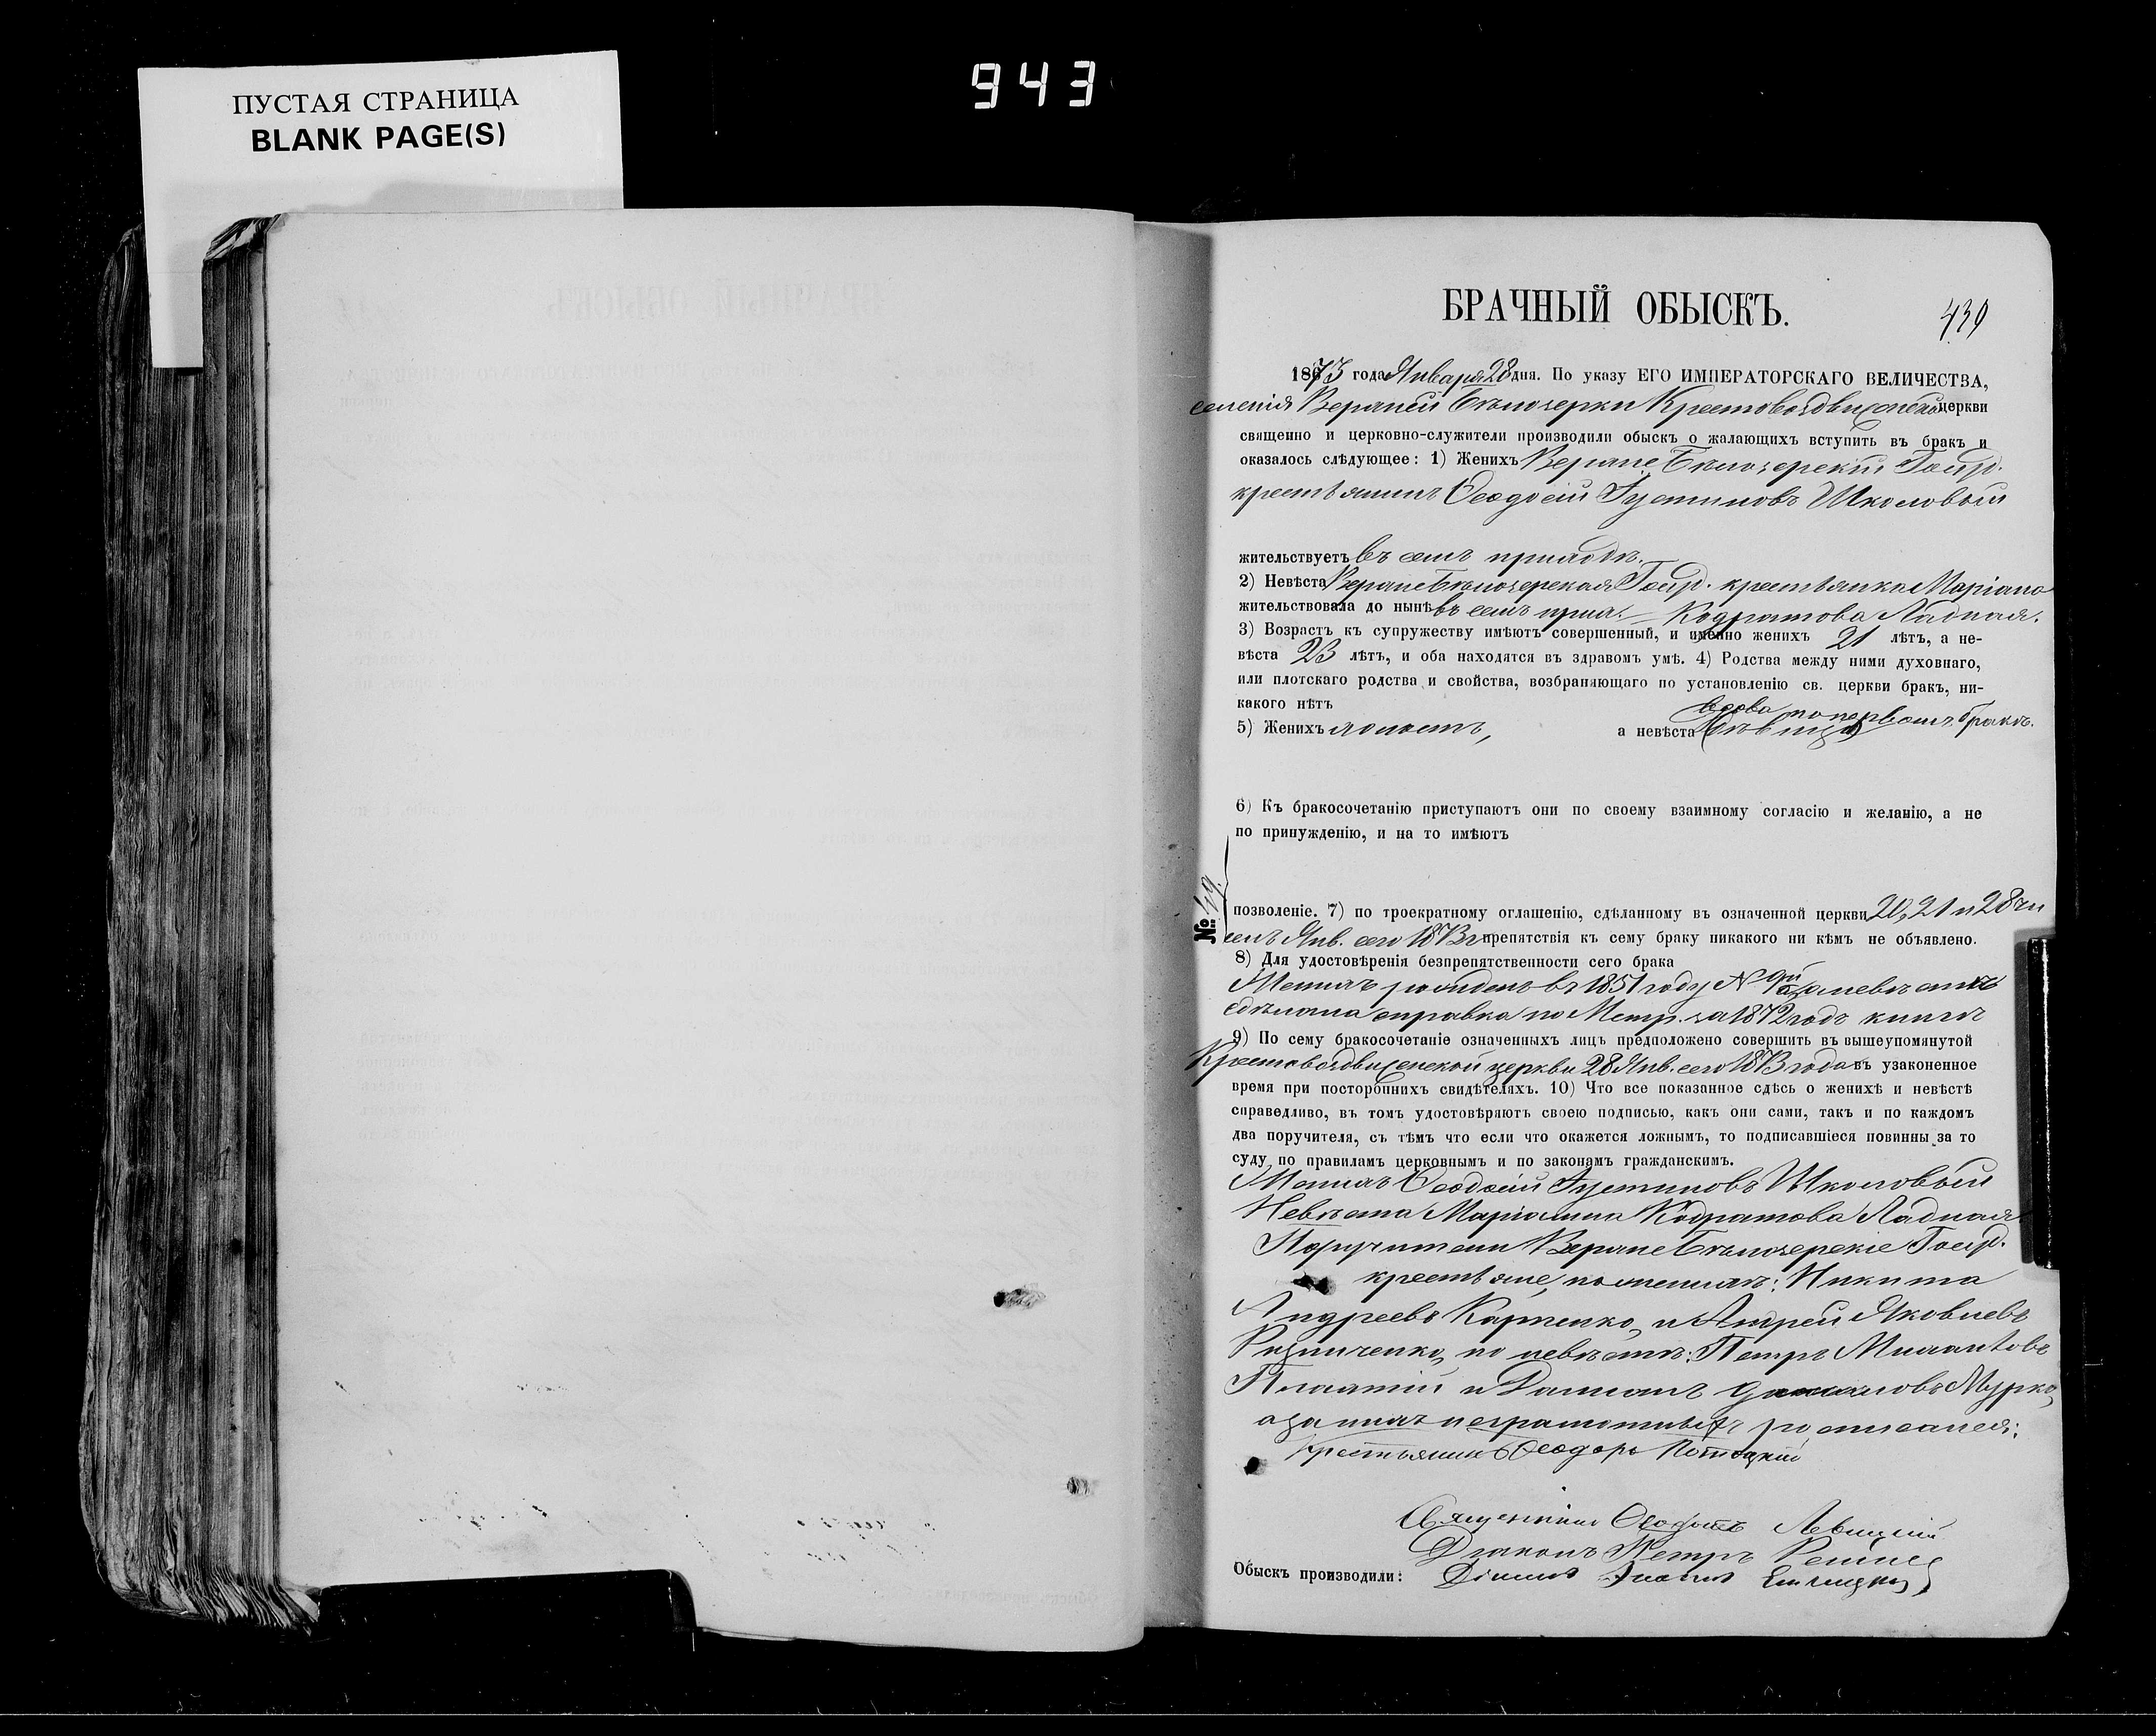 943
ПУСТАЯ СТРАНИЦА
BLANK PAGE(S)
БРАЧНЫЙ ОБЫСКЪ.
439
1873 года Января 28 дня. По указу ЕГО ИМПЕРАТОРСКАГО ВЕЛИЧЕСТВА,
селенія Верхней Бѣлозерки Крестовоздвиженской церкви
священно и церковно-служители производили обыскъ о жалающихъ вступить въ бракъ и
оказалось слѣдующее: 1) Женихъ Верхне Бѣлозерскій Госуд.
крестьянинъ Ѳеодосій Іустиновъ Школовый
жительствуетъ въ семъ приходѣ.
2) Невѣста Верхне Бѣлозерская Госуд. крестьянка Маріана
жительствовала до нынѣ въ семъ прих. — Кодратова Ладная.
3) Возрастъ къ супружеству имѣютъ совершенный, и именно женихъ 21 лѣтъ, а не-
вѣста 23 лѣтъ, и оба находятся въ здравомъ умѣ. 4) Родства между ними духовнаго,
или плотскаго родства и свойства, возбраняющаго по установленію св. церкви бракъ, ни-
какого нѣтъ
вдова по первомъ бракѣ.
5) Женихъ холостъ, а невѣста (дѣвица)
6) Къ бракосочетанію приступаютъ они по своему взаимному согласію и желанію, а не
по принужденію, и на то имѣютъ
№ 49.
позволеніе. 7) по троекратному оглашенію, сдѣланному въ означенной церкви 20, 21 и 28 чи
селъ Янв. сего 1873 г. препятствія къ сему браку никакого ни кѣмъ не объявлено.
8) Для удостовѣренія безпрепятственности сего брака
Женихъ рожденъ въ 1851 году № а о невѣстѣ
сдѣлана справка по Метр. за 1872 годъ книгѣ
9) По сему бракосочетаніе означенныхъ лицъ предположено совершить въ вышеупомянутой
Крестовоздвиженской церкви 28 Янв. сего 1873 года въ узаконенное
время при постороннихъ свидѣтеляхъ. 10) Что все показанное сдѣсь о женихѣ и невѣстѣ
справедливо, въ томъ удостовѣряютъ своею подписью, какъ они сами, такъ и по каждомъ
два поручителя, съ тѣмъ что если что окажется ложнымъ, то подписавшіеся повинны за то
суду по правиламъ церковнымъ и по законамъ гражданскимъ.
Женихъ Ѳеодосій Іустиновъ Школовый
Невѣста Маріанна Кодратова Ладная
Поручители Верхне Бѣлозерскіе Госуд.
крестьяне, по женихѣ: Никита
Андреевъ Карпенко, и Андрей Яковлевъ
Ризниченко, по невѣстѣ: Петръ
и Даміанъ Мурко,
а за нихъ неграмотныхъ росписался:
Крестьянинъ Ѳеодоръ Потоцкій
Священникъ Ѳеодотъ Левицкій
Діаконъ Петръ
Обыскъ производили: